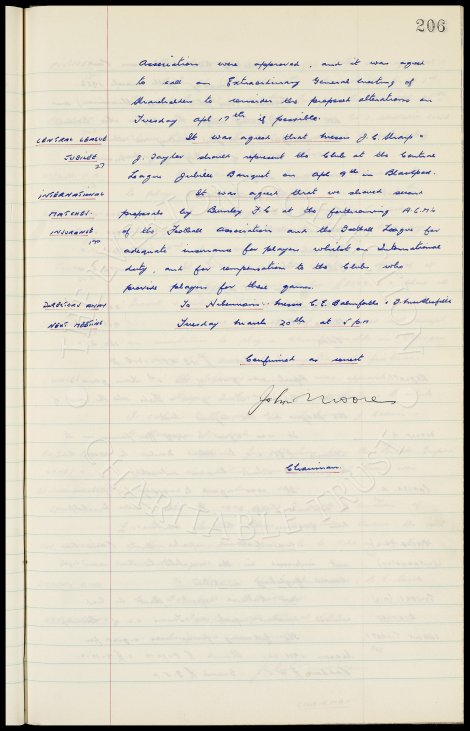 206
Association were approved, and it was agreed
to call an Extraordinary General Meeting of
Shareholders to consider the proposed alterations on
Tuesday Apl 17th if possible.
CENTRAL LEAGUE It was agreed that Messrs J. C. Sharp &
JUBILEE J. Taylor should represent the Club at the Central
League Jubilee Banquet on Apl 9th in Blackpool.
INTERNATIONAL It was agreed that we should second
MATCHES. proposals by Burnley F.C at the forthcoming A.G.M's
INSURANCE of the Football Association and the Football League for
adequate insurance for players whilst on International
duty, and for compensation to the Clubs who
provide players for these games.
DIRECTORS AWAY To Hibernians: Messrs C. E. Balmforth &
NEXT MEETING Tuesday March 20th at 5 pm
Confirmed as correct
John Moores
Chairman.
CHARITABLE TRUST